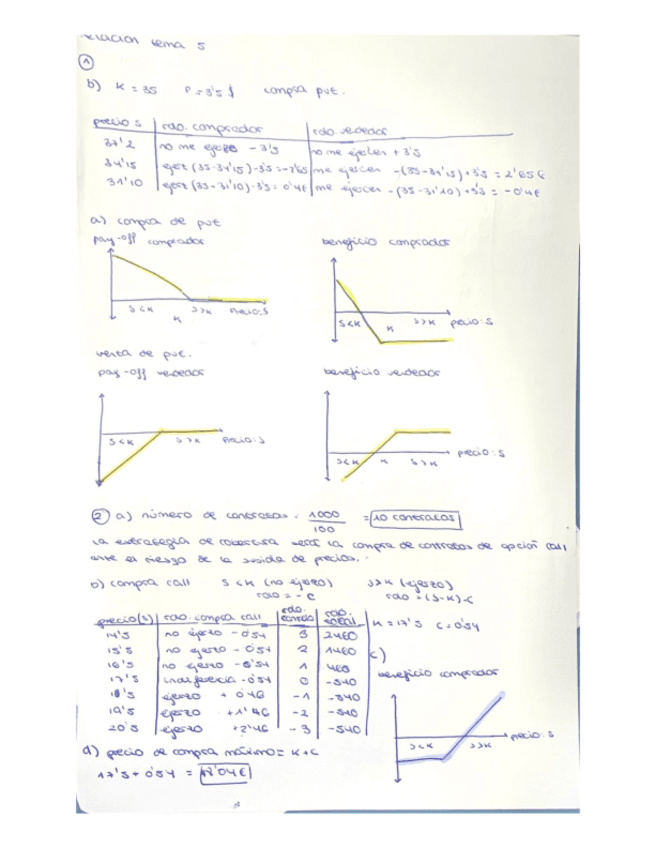 relación tema 5
①
b) K = 35 P = 3'5 $ compra put.
precio S | rdo. comprador | rdo. vendedor
37'2 | no me ejerc -3'5 | no me ejercen +3'5
34'15 | ejerz (35-34'15)-3'5 = -2'65 | me ejercen -(35-34'15)+3'5 = 2'65€
31'10 | ejerz (35-31'10)-3'5 = 0'4€ | me ejercen -(35-31'10)+3'5 = -0'4€
a) compra de put
pay-off comprador beneficio comprador
S<K K S>K precio:S
S<K K S>K precio:S
venta de put.
pay-off vendedor beneficio vendedor
S<K S>K precio:S
S<K K S>K precio:S
② a) número de contratos: 1000/100 = 10 contratos
La estrategia de cobertura será la compra de contratos de opción call
ante el riesgo de la subida de precios.
b) compra call S<K (no ejerzo) S>K (ejerzo)
rdo = -C rdo = (S-K)-C
precio(S) | rdo. compra call | rdo. contado | rdo. total | K = 17'5 C = 0'54
14'5 | no ejerzo -0'54 | 3 | 2460
15'5 | no ejerzo -0'54 | 2 | 1460
16'5 | no ejerzo -0'54 | 1 | 460
17'5 | indiferencia -0'54 | 0 | -540
18'5 | ejerzo +0'46 | -1 | -540
19'5 | ejerzo +1'46 | -2 | -540
20'5 | ejerzo +2'46 | -3 | -540
c)
beneficio comprador
S<K S>K precio:S
d) precio de compra máximo = K+C
17'5 + 0'54 = 18'04€